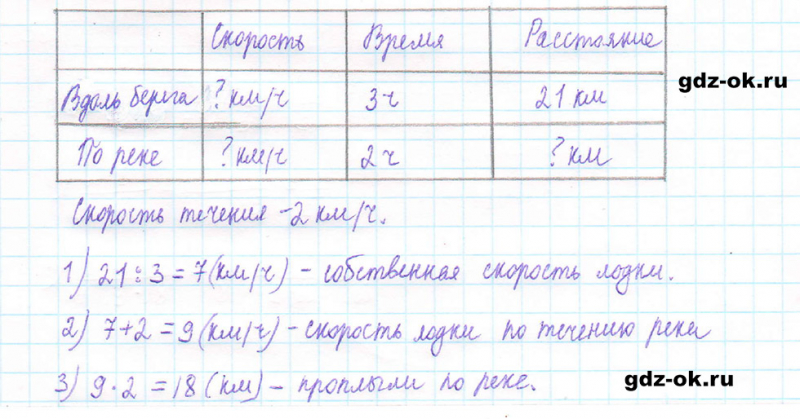 Скорость Время Расстояние
gdz-ok.ru
Вдоль берега ? км/ч 3 ч 21 км
По реке ? км/ч 2 ч ? км
Скорость течения - 2 км/ч.
1) 21 : 3 = 7 (км/ч) - собственная скорость лодки.
2) 7 + 2 = 9 (км/ч) - скорость лодки по течению реки
3) 9 · 2 = 18 (км) - проплыли по реке.
gdz-ok.ru